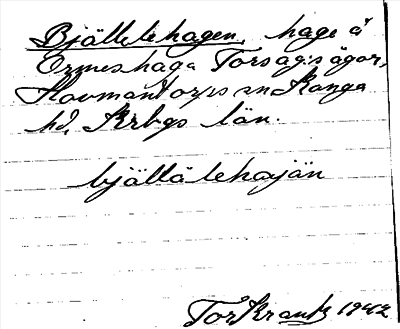 Bjällelehagen, hage å
Ormeshaga Torsag:s ägor,
Hovmantorps sn Konga
hd, Krbgs län.
bjällälehajän
Tor Krantz 1942